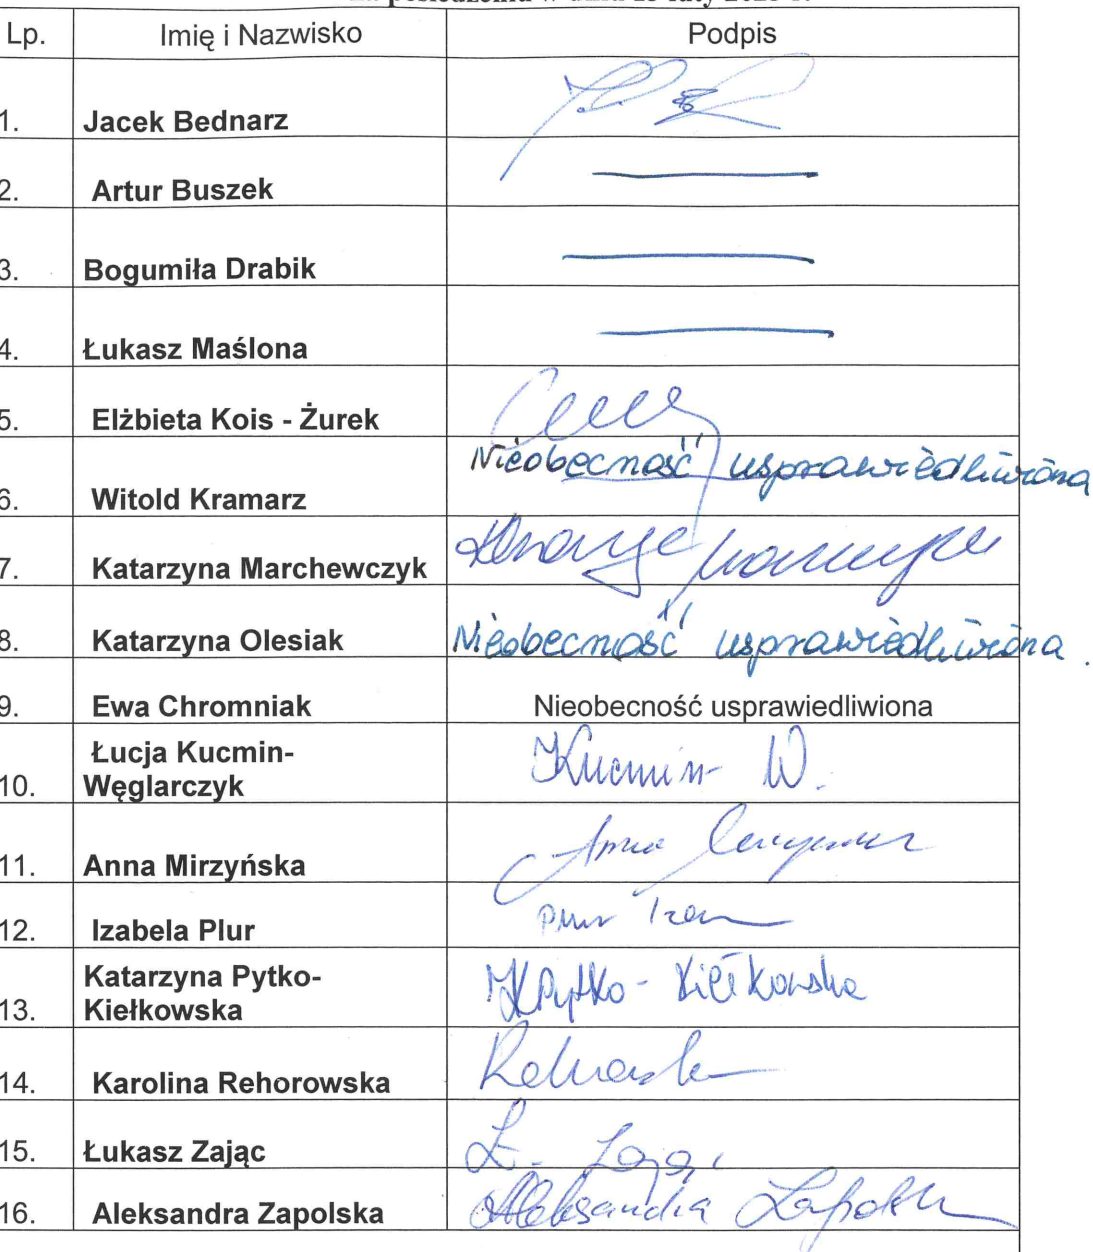 Lp. Imię i Nazwisko Podpis
1. Jacek Bednarz
2. Artur Buszek
3. Bogumiła Drabik
4. Łukasz Maślona
5. Elżbieta Kois - Żurek
Nieobecność usprawiedliwiona
6. Witold Kramarz
7. Katarzyna Marchewczyk
8. Katarzyna Olesiak Nieobecność usprawiedliwiona.
9. Ewa Chromniak Nieobecność usprawiedliwiona
Łucja Kucmin-
10. Węglarczyk Kucmin W.
11. Anna Mirzyńska Anna
12. Izabela Plur Plur Iza
Katarzyna Pytko-
13. Kiełkowska KPytko-Kiełkowska
14. Karolina Rehorowska
15. Łukasz Zając Ł. Zając
16. Aleksandra Zapolska Aleksandra Zapolska